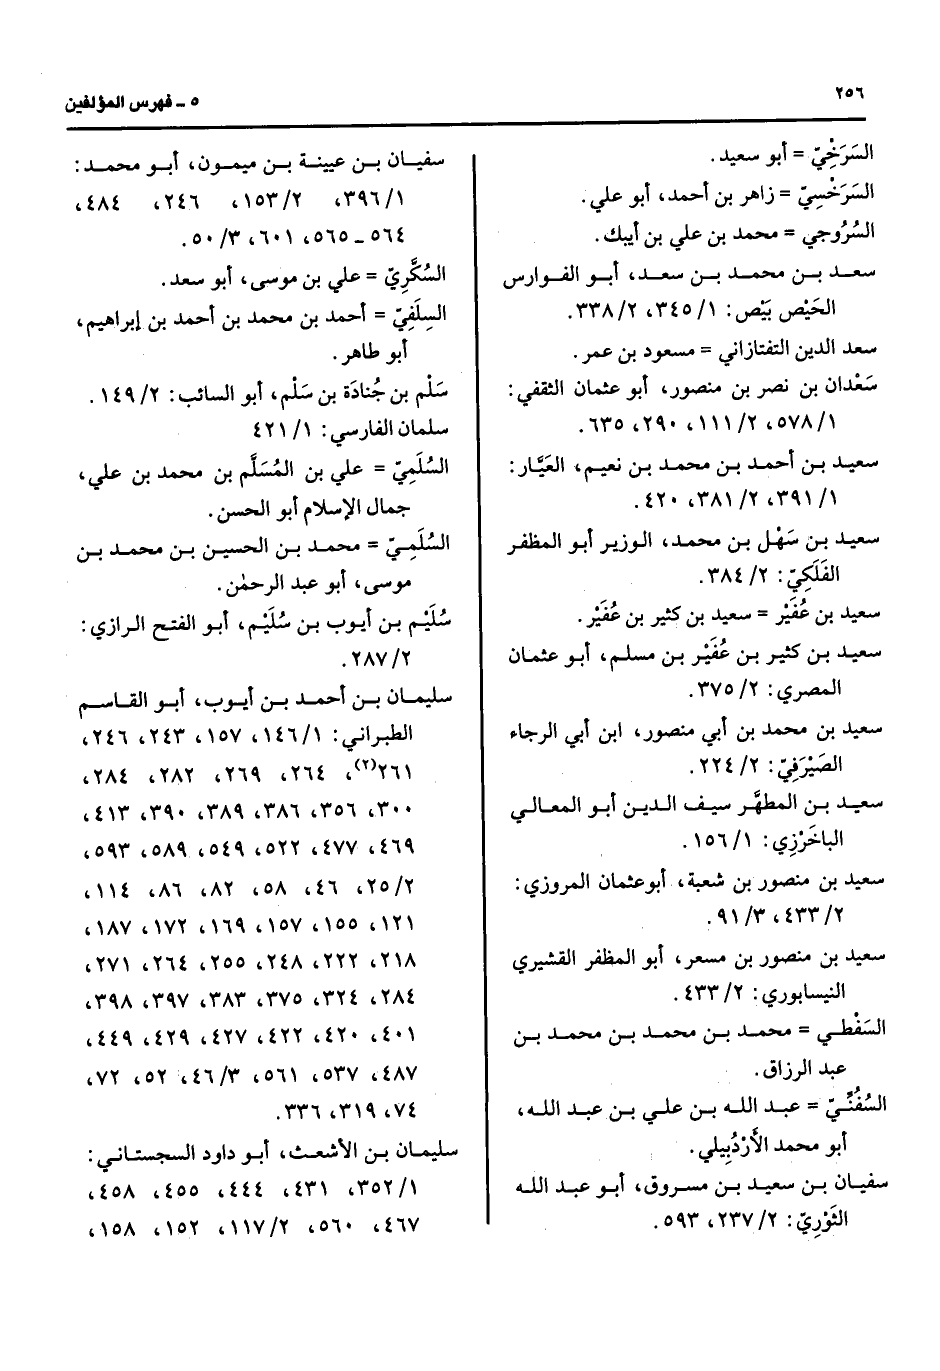 ٢٥٦
٥ ـ فهرس المؤلفين
السَرَخِيّ = أبو سعيد.
السَرَخْسِيّ = زاهر بن أحمد، أبو علي.
السُرُوجي = محمد بن علي بن أيبك.
سعد بن محمد بن سعد، أبو الفوارس
الحَيْص بَيْص: ١/ ٣٤٥، ٢/ ٣٣٨.
سعد الدين التفتازاني = مسعود بن عمر.
سَعْدان بن نصر بن منصور، أبو عثمان الثقفي:
١/ ٥٧٨، ٢/ ١١١، ٢٩٠، ٦٣٥.
سعيد بن أحمد بن محمد بن نعيم، العَيَّار:
١/ ٣٩١، ٢/ ٣٨١، ٤٢٠.
سعيد بن سَهْل بن محمد، الوزير أبو المظفر
الفَلَكِيّ: ٢/ ٣٨٤.
سعيد بن عُفَيْر = سعيد بن كثير بن عُفَيْر.
سعيد بن كثير بن عُفَيْر بن مسلم، أبو عثمان
المصري: ٢/ ٣٧٥.
سعيد بن محمد بن أبي منصور، ابن أبي الرجاء
الصَيْرَفِيّ: ٢/ ٢٢٤.
سعيد بن المطهَّر سيف الدين أبو المعالي
الباخَرْزِي: ١/ ١٥٦.
سعيد بن منصور بن شعبة، أبوعثمان المروزي:
٢/ ٤٣٣، ٣/ ٩١.
سعيد بن منصور بن مسعر، أبو المظفر القشيري
النيسابوري: ٢/ ٤٣٣.
السَفْطي = محمد بن محمد بن محمد بن
عبد الرزاق.
السُفُنِّيّ = عبد الله بن علي بن عبد الله،
أبو محمد الأَرْدُبِيلي.
سفيان بن سعيد بن مسروق، أبو عبد الله
الثَوْرِيّ: ٢/ ٢٣٧، ٥٩٣.
سفيان بن عيينة بن ميمون، أبو محمد:
١/ ٣٩٦، ٢/ ١٥٣، ٢٤٦، ٤٨٤،
٥٦٤ ـ ٥٦٥، ٦٠١، ٣/ ٥٠.
السُكَّرِيّ = علي بن موسى، أبو سعد.
السِلَفِيّ = أحمد بن محمد بن أحمد بن إبراهيم،
أبو طاهر.
سَلْم بن جُنادَة بن سَلْم، أبو السائب: ٢/ ١٤٩.
سلمان الفارسي: ١/ ٤٢١
السُلَمِيّ = علي بن المُسَلَّم بن محمد بن علي،
جمال الإسلام أبو الحسن.
السُلَمِيّ = محمد بن الحسين بن محمد بن
موسى، أبو عبد الرحمٰن.
سُلَيْم بن أيوب بن سُلَيْم، أبو الفتح الرازي:
٢/ ٢٨٧.
سليمان بن أحمد بن أيوب، أبو القاسم
الطبراني: ١/ ١٤٦، ١٥٧، ٢٤٣، ٢٤٦،
٢٦١(٢)، ٢٦٤، ٢٦٩، ٢٨٢، ٢٨٤،
٣٠٠، ٣٥٦، ٣٨٦، ٣٨٩، ٣٩٠، ٤١٣،
٤٦٩، ٤٧٧، ٥٢٢، ٥٤٩، ٥٨٩، ٥٩٣،
٢/ ٢٥، ٤٦، ٥٨، ٨٢، ٨٦، ١١٤،
١٢١، ١٥٥، ١٥٧، ١٦٩، ١٧٢، ١٨٧،
٢١٨، ٢٢٢، ٢٤٨، ٢٥٥، ٢٦٤، ٢٧١،
٢٨٤، ٣٢٤، ٣٧٥، ٣٨٣، ٣٩٧، ٣٩٨،
٤٠١، ٤٢٠، ٤٢٢، ٤٢٧، ٤٢٩، ٤٤٩،
٤٨٧، ٥٣٧، ٥٦١، ٣/ ٤٦، ٥٢، ٧٢،
٧٤، ٣١٩، ٣٣٦.
سليمان بن الأشعث، أبو داود السجستاني:
١/ ٣٥٢، ٤٣١، ٤٤٤، ٤٥٥، ٤٥٨،
٤٦٧، ٥٦٠، ٢/ ١١٧، ١٥٢، ١٥٨،